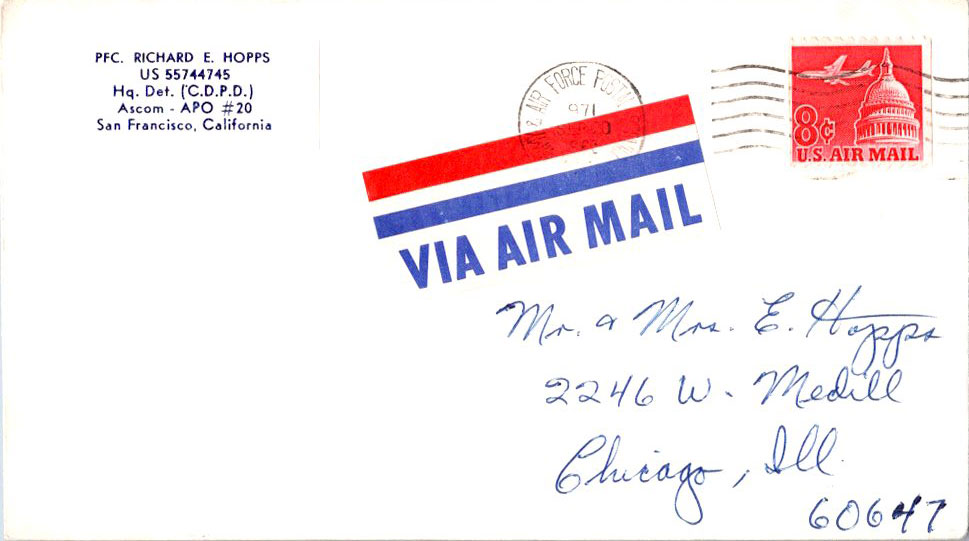 PFC. RICHARD E. HOPPS
US 55744745
Hq. Det. (C.D.P.D.)
Ascom - APO #20
San Francisco, California
AIR FORCE POSTAL
971
8¢
U.S. AIR MAIL
VIA AIR MAIL
Mr. & Mrs. E. Hopps
2246 W. Medill
Chicago, Ill.
60647